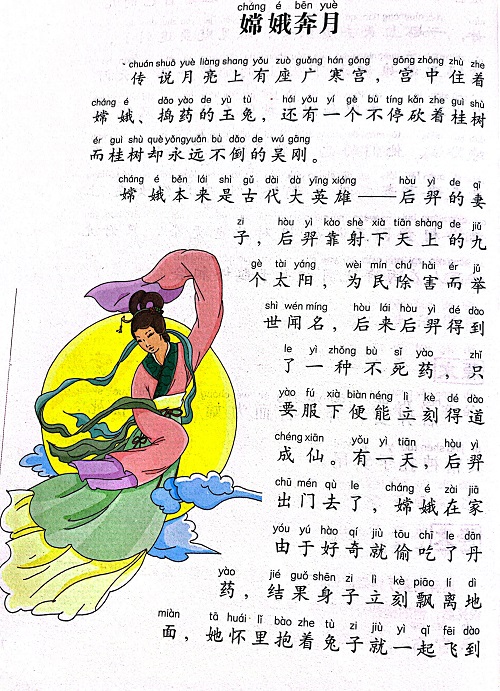 cháng é bēn yuè
嫦娥奔月
chuán shuō yuè liàng shang yǒu zuò guǎng hán gōng gōng zhōng zhù zhe
传说月亮上有座广寒宫，宫中住着
cháng é dǎo yào de yù tù hái yǒu yí gè bù tíng kǎn zhe guì shù
嫦娥、捣药的玉兔，还有一个不停砍着桂树
ér guì shù què yǒng yuǎn bù dǎo de wú gāng
而桂树却永远不倒的吴刚。
cháng é běn lái shì gǔ dài dà yīng xióng hòu yì de qī
嫦娥本来是古代大英雄——后羿的妻
zi hòu yì kào shè xià tiān shàng de jiǔ
子，后羿靠射下天上的九
gè tài yáng wèi mín chú hài ér jǔ
个太阳，为民除害而举
shì wén míng hòu lái hòu yì dé dào
世闻名，后来后羿得到
le yì zhǒng bù sǐ yào zhǐ
了一种不死药，只
yào fú xià biàn néng lì kè dé dào
要服下便能立刻得道
chéng xiān yǒu yì tiān hòu yì
成仙。有一天，后羿
chū mén qù le cháng é zài jiā
出门去了，嫦娥在家
yóu yú hào qí jiù tōu chī le dān
由于好奇就偷吃了丹
yào jié guǒ shēn zi lì kè piāo lí dì
药，结果身子立刻飘离地
miàn tā huái lǐ bào zhe tù zi jiù yì qǐ fēi dào
面，她怀里抱着兔子就一起飞到